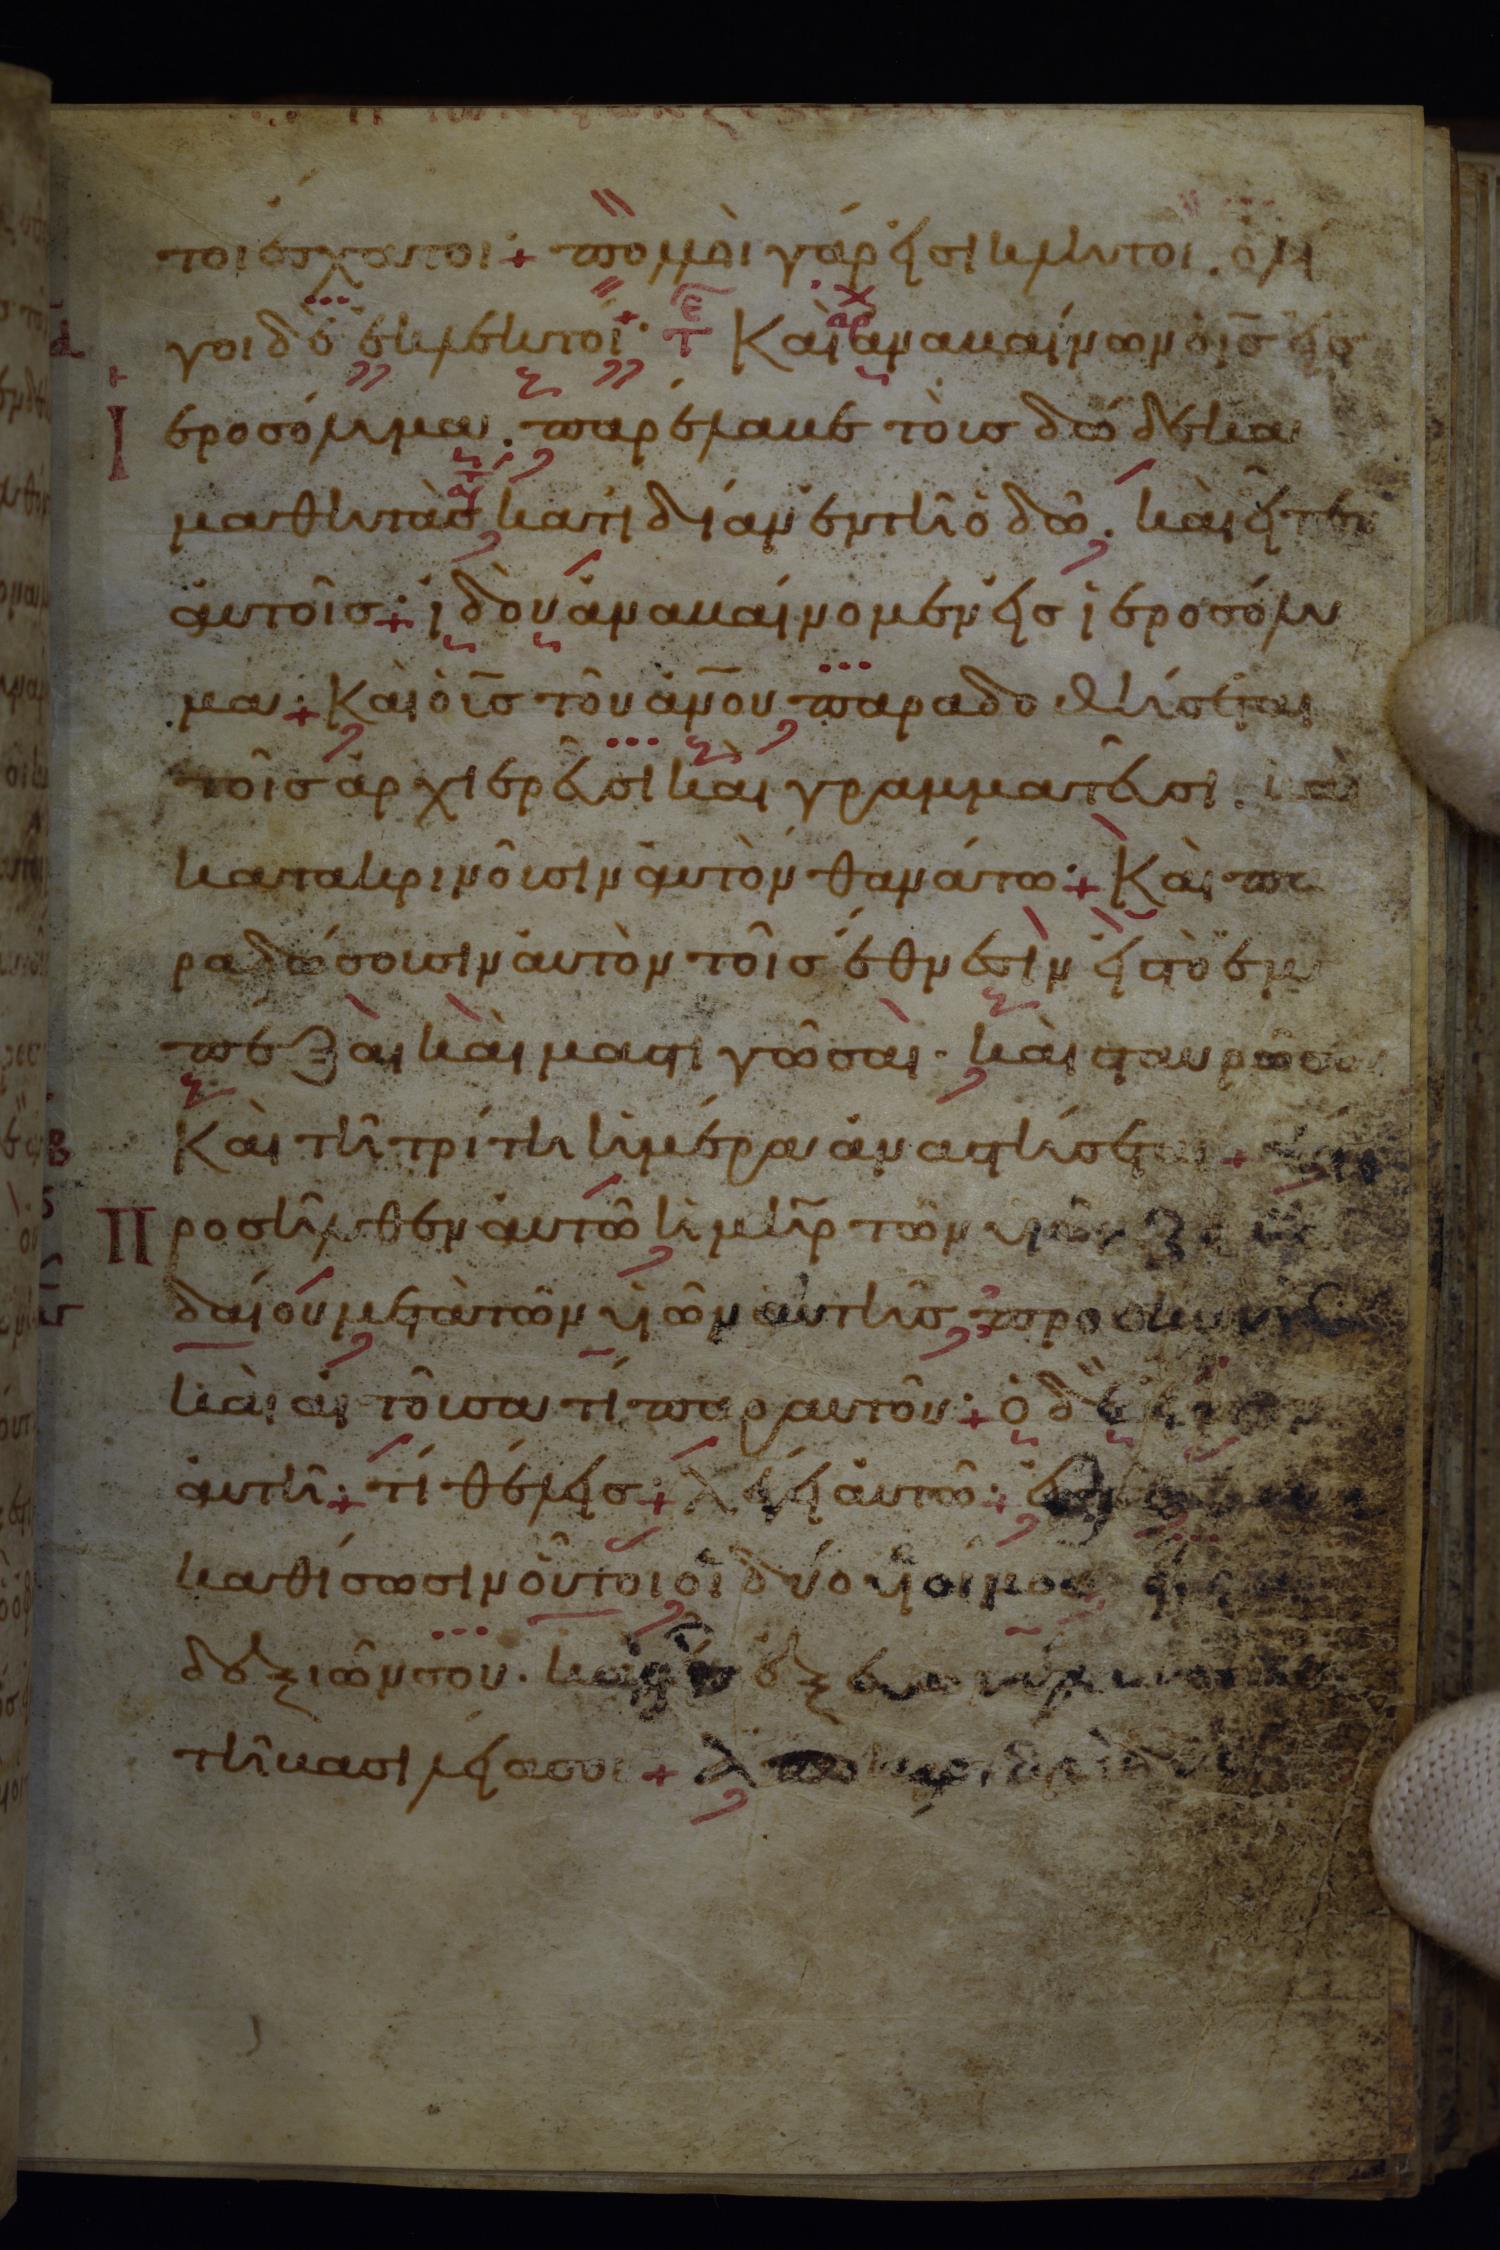 τοι ἔσχατοι + πολλοὶ γάρ εἰσι κλητοὶ. ὀλί
γοι δὲ ἐκλεκτοί· Καὶ ἀναβαίνων ὁ ι̅ς̅ εἰς
Ιεροσόλυμα. παρέλαβε τοὺς δώδεκα
μαθητὰς κατιδίαν ἐν τῆ ὁδῶ. καὶ εἶπεν
αὐτοῖς + ἰδοὺ ἀναβαίνομεν εἰς ἱεροσόλυ
μα· + Καὶ ὁ υ̅ς̅ τοῦ ἀ̅ν̅ου παραδοθήσεται
τοῖς ἀρχιερεῦσι καὶ γραμματεῦσι. καὶ
κατακρινοῦσιν αὐτὸν θανάτω· + Καὶ πα
ραδώσουσιν αὐτὸν τοῖς ἔθνεσιν εἰς τὸ ἐμ
πέξαι καὶ μαστιγῶσαι. καὶ σταυρῶσαι
Καὶ τῆ τρίτη ἡμέρα ἀναστήσεται +
Προσῆλθεν αὐτῶ ἡ μ̅η̅ρ τῶν υἱῶν Ζεβε
δαίου μετὰ τῶν υἱῶν αὐτῆς προσκυνοῦσα
καὶ αἰτοῦσα τί παρ αὐτοῦ· + ὁ δὲ εἶπεν
αὐτῆ· + τί θέλεις· + λέγει αὐτῶ· +
καθίσωσιν οὗτοι οἱ δύο υἱοί μου εἷς
δεξιῶν σου. καὶ εἷς ἐξ εὐωνύμων
τῆ βασιλεία σου +